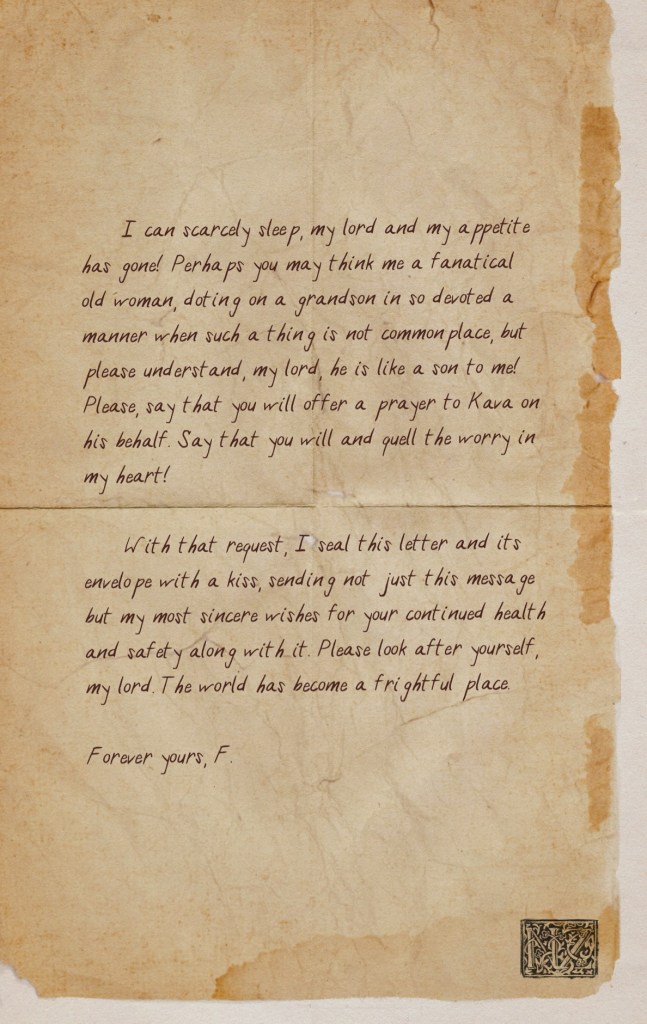 I can scarcely sleep, my lord and my appetite
has gone! Perhaps you may think me a fanatical
old woman, doting on a grandson in so devoted a
manner when such a thing is not commonplace, but
please understand, my lord, he is like a son to me!
Please, say that you will offer a prayer to Kava on
his behalf. Say that you will and quell the worry in
my heart!
With that request, I seal this letter and its
envelope with a kiss, sending not just this message
but my most sincere wishes for your continued health
and safety along with it. Please look after yourself,
my lord. The world has become a frightful place.
Forever yours, F.